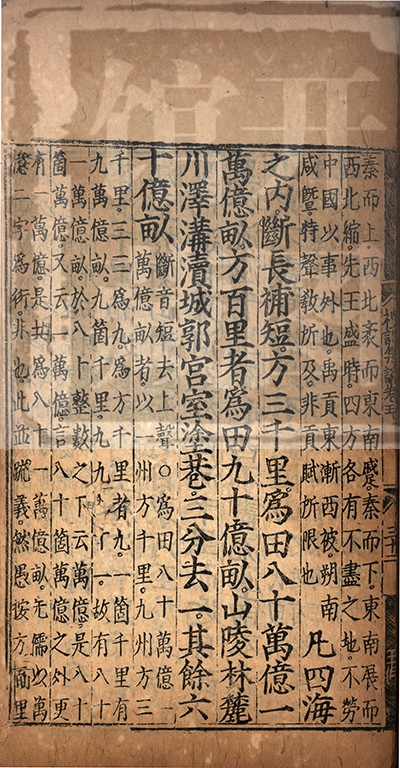 秦而上。西北袤而東南蹙。秦而下。東南展而
西北縮。先王盛時。四方各有不盡之地。不勞
中國以事外也。禹貢東漸西被。朔南
咸曁。特聲敎所及。非貢賦所限也 凡四海
之內。斷長補短。方三千里。爲田八十萬億一
萬億畝。方百里者。爲田九十億畝。山陵林麓
川澤溝瀆城郭宮室塗巷。三分去一。其餘六
十億畝 斷音短去上聲。○爲田八十萬億一
萬億畝者。以一州方千里。九州方三
千里。三三爲九。爲方千里者九。一箇千里有
九萬億畝。九箇千里。九九八十一。故有八十
一萬億畝。於八十整數之下云萬億。是八十
箇萬億。又云一萬億。言八十箇萬億之外。更
有一萬億。是共爲八十一萬億畝。先儒以萬
億二字爲衍。非也。此並䟽義。然愚按方百里